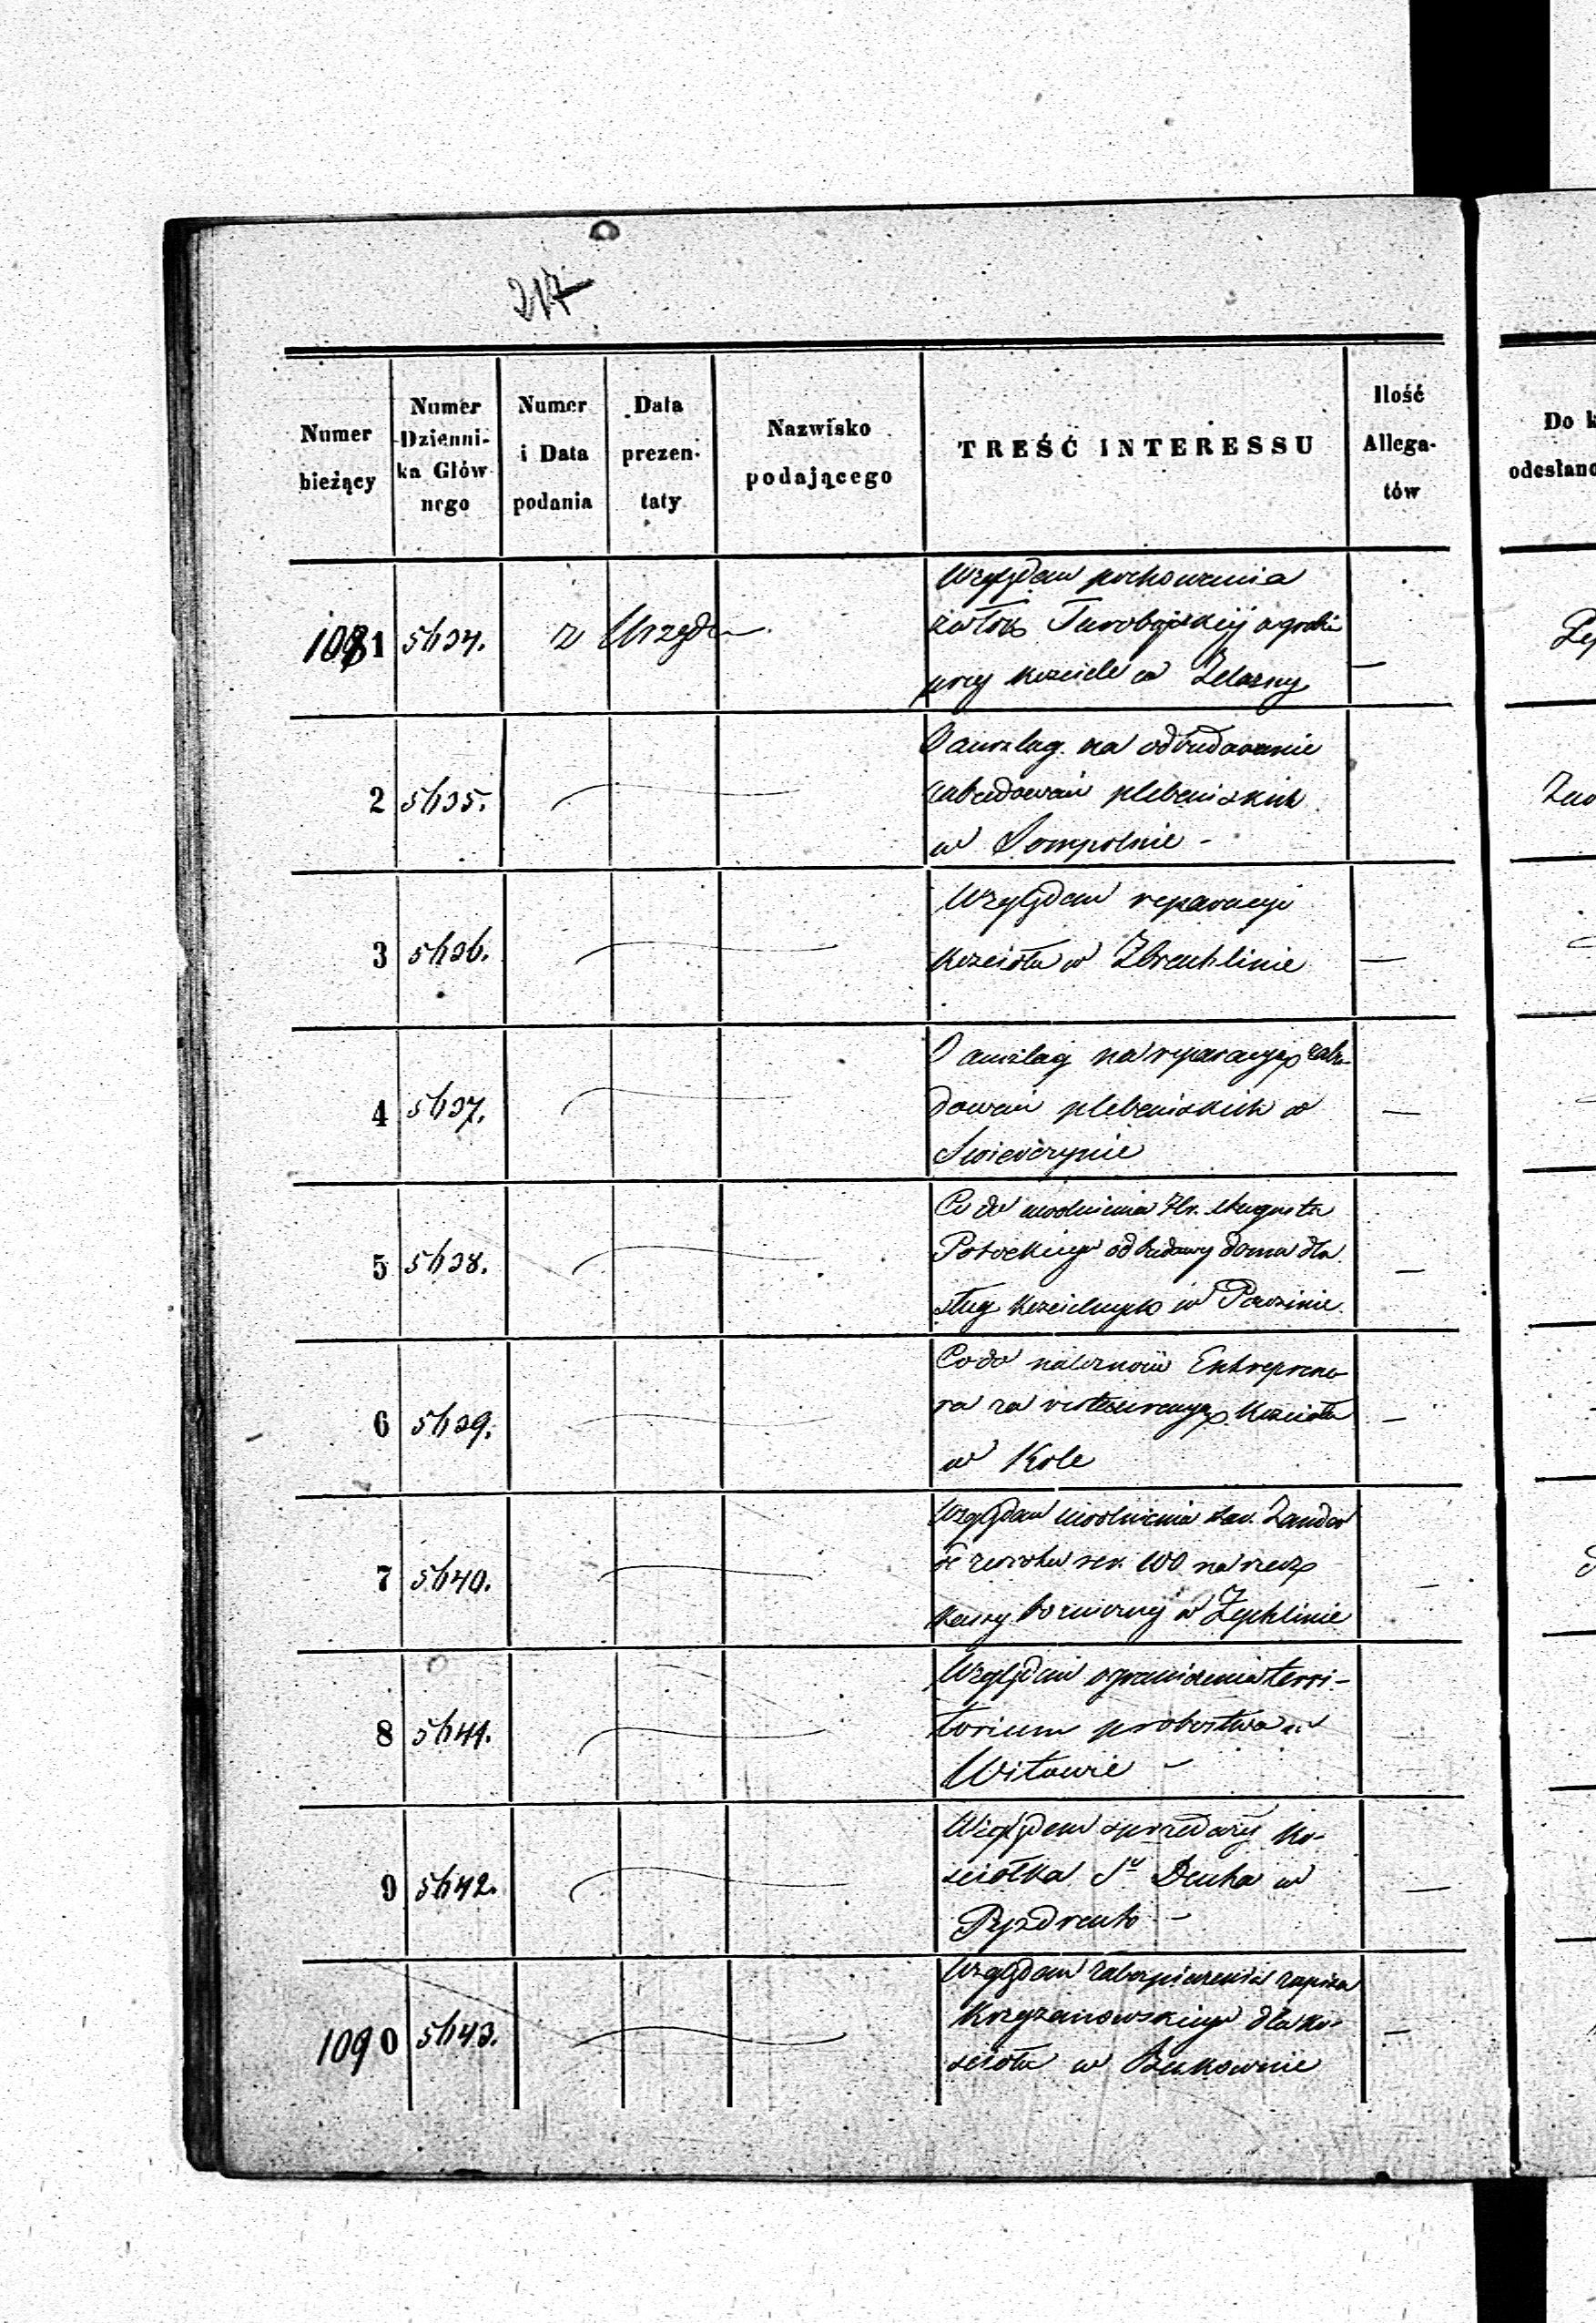 217
Numer bieżący
Numer Dzienni-ka Głów-nego
Numer i Data podania
Data prezen-taty
Nazwisko podającego
TREŚĆ INTERESSU
Ilość Allega-tów
Do k
odesłano
1081 5634. z Urzędu
Względem pochowania
zwłok Turobojskiéj w grobie
przy kościele w Żelazny
2 5635.
O anszlag na odbudowanie
zabudowań plebańskich
w Sompolnie -
3 5636.
Względem reparacyi
kościoła w Zbrachlinie
4 5637.
O anszlag na reparacyą zabu-
dowań plebańskich w
Swierczynie
5 5638.
Co do uwolnienia Hr. Augusta
Potockiego od budowy domu dla
sług kościelnych w
6 5639.
Co do należności Entreprene-
ra za restauracyą kościoła
w Kole
7 5640.
Względem uwolnienia
rsr. 100 na rzecz
kassy bożniczny w
8 5641.
Względem ograniczenia terri-
torium probostwa w
Witowie -
9 5642.
Względem sprzedaży ko-
ściołka Sgo Ducha w
Pyzdrach -
1090 5643.
Względem zabezpieczenia zapisu
Krzyżanowskiego dla ko-
ścioła w Bukownie